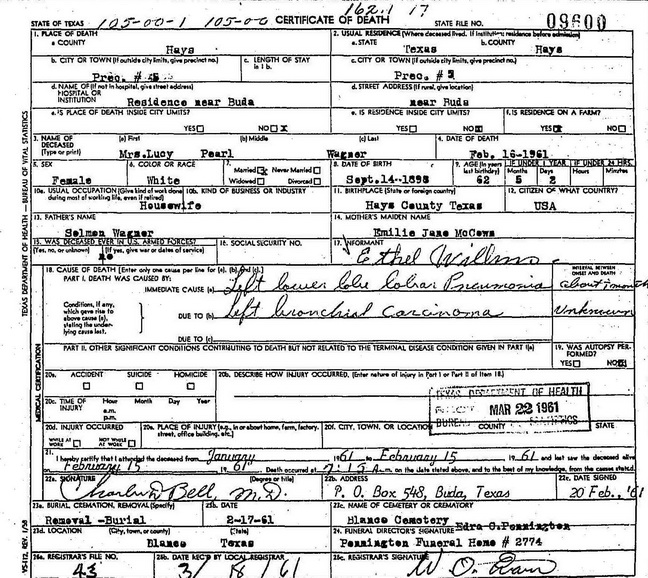 162.1 17
STATE OF TEXAS 105-00-1 105-00 CERTIFICATE OF DEATH STATE FILE NO. 09600
1. PLACE OF DEATH 2. USUAL RESIDENCE (Where deceased lived. If institution: residence before admission)
a. COUNTY a. STATE b. COUNTY
Hays Texas Hays
b. CITY OR TOWN (If outside city limits, give precinct no.) c. LENGTH OF STAY in 1 b. c. CITY OR TOWN (If outside city limits, give precinct no.)
Prec. # Prec. #
d. NAME OF (If not in hospital, give street address) HOSPITAL OR INSTITUTION d. STREET ADDRESS (If rural, give location)
Residence near Buda near Buda
e. IS PLACE OF DEATH INSIDE CITY LIMITS? e. IS RESIDENCE INSIDE CITY LIMITS? f. IS RESIDENCE ON A FARM?
YES NO X YES NO X YES X NO
3. NAME OF DECEASED (Type or print) (a) First (b) Middle (c) Last 4. DATE OF DEATH
Mrs. Lucy Pearl Wagner Feb. 16-1961
5. SEX 6. COLOR OR RACE 7. Married X Never Married Widowed Divorced 8. DATE OF BIRTH 9. AGE (In years last birthday) IF UNDER 1 YEAR IF UNDER 24 HRS.
Months Days Hours Minutes
Female White Sept.14--1898 62 5 2
10a. USUAL OCCUPATION (Give kind of work done during most of working life, even if retired) 10b. KIND OF BUSINESS OR INDUSTRY 11. BIRTHPLACE (State or foreign country) 12. CITIZEN OF WHAT COUNTRY?
Housewife Hays County Texas USA
13. FATHER'S NAME 14. MOTHER'S MAIDEN NAME
Selmon Wagner Emilie Jane McCown
15. WAS DECEASED EVER IN U.S. ARMED FORCES? (Yes, no, or unknown) (If yes, give war or dates of service) 16. SOCIAL SECURITY NO. 17. INFORMANT
no Ethel
18. CAUSE OF DEATH [Enter only one cause per line for (a), (b), and (c).] INTERVAL BETWEEN ONSET AND DEATH
PART I. DEATH WAS CAUSED BY:
IMMEDIATE CAUSE (a) Left lower lobe lobar Pneumonia about month
Conditions, if any, which gave rise to above cause (a), stating the underlying cause last.
DUE TO (b) Left bronchial carcinoma Unknown
DUE TO (c)
PART II. OTHER SIGNIFICANT CONDITIONS CONTRIBUTING TO DEATH BUT NOT RELATED TO THE TERMINAL DISEASE CONDITION GIVEN IN PART I(a) 19. WAS AUTOPSY PERFORMED?
YES NO X
20a. ACCIDENT SUICIDE HOMICIDE 20b. DESCRIBE HOW INJURY OCCURRED. (Enter nature of injury in Part I or Part II of item 18.)
20c. TIME OF INJURY Hour a.m. p.m. Month Day Year
TEXAS DEPARTMENT OF HEALTH
MAR 22 1961
BUREAU STATISTICS
20d. INJURY OCCURRED WHILE AT WORK NOT WHILE AT WORK 20e. PLACE OF INJURY (e.g., in or about home, farm, factory, street, office building, etc.) 20f. CITY, TOWN, OR LOCATION COUNTY STATE
21. I hereby certify that I attended the deceased from January 1961 to February 15 1961 and last saw the deceased alive
on February 15 1961 Death occurred at m. on the date stated above, and to the best of my knowledge, from the causes stated.
22a. SIGNATURE (Degree or title) 22b. ADDRESS 22c. DATE SIGNED
Bell, M.D. P. O. Box 548, Buda, Texas 20 Feb., '61
23a. BURIAL, CREMATION, REMOVAL (Specify) 23b. DATE 23c. NAME OF CEMETERY OR CREMATORY
Removal -Burial 2-17-61 Blanco Cemetery
23d. LOCATION (City, town, or county) (State) 24. FUNERAL DIRECTOR'S SIGNATURE Edra C. Pennington
Blanco Texas Pennington Funeral Home # 2774
25a. REGISTRAR'S FILE NO. 25b. DATE REC'D BY LOCAL REGISTRAR 25c. REGISTRAR'S SIGNATURE
43 3/ 8 / 61 W. O.
TEXAS DEPARTMENT OF HEALTH — BUREAU OF VITAL STATISTICS
MEDICAL CERTIFICATION
REV. 1/58